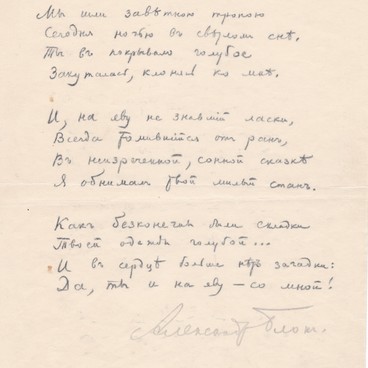 Мы шли завѣтною тропою
Сегодня ночью въ свѣтломъ снѣ,
Ты въ покрывало голубое
Закуталась, клонясь ко мнѣ.
И, на яву не знавшій ласки,
Всегда томившійся отъ ранъ,
Въ неизреченной, сонной сказкѣ
Я обнималъ твой милый станъ.
Какъ безконечны были складки
Твоей одежды голубой...
И въ сердцѣ больше нѣтъ загадки:
Да, ты и на яву – со мной!
Александръ Блокъ.